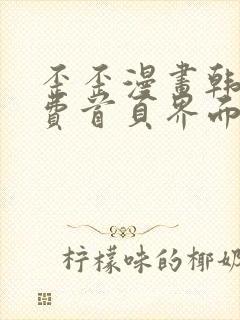 歪歪漫畫韩
費首頁界面
柠檬味的椰奶